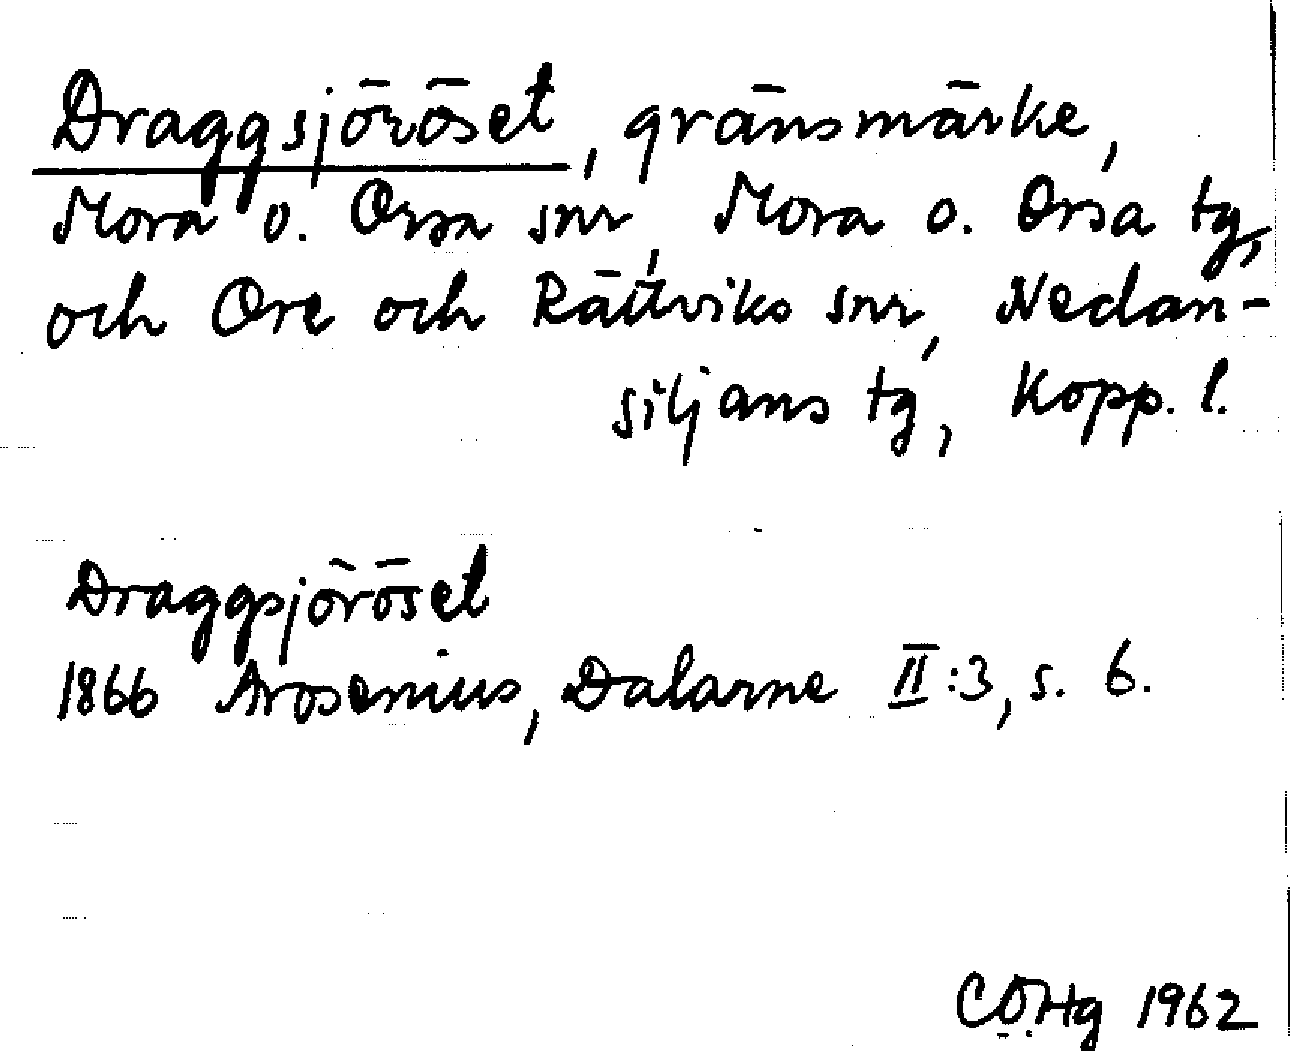 Draggsjöröset, gränsmärke,
Mora o. Orsa snr, Mora o. Orsa tg,
och Ore och Rättviks snr, Nedan-
siljans tg, Kopp. l.
Draggsjöröset
1866 Arosenius, Dalarne II:3, s. 6.
CÖHg 1962